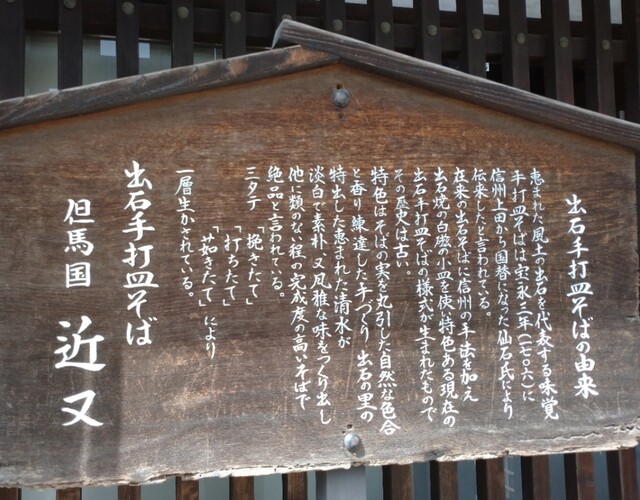 出石手打皿そばの由来
恵まれた風土の出石を代表する味覚
手打皿そばは宝永三年(一七〇六)に
信州上田から国替になった仙石氏により
伝来したと言われている。
在来の出石そばに信州の手法を加え
出石焼の白磁の皿を使い特色ある現在の
出石手打皿そばの様式が生まれたもので
その歴史は古い。
特色はそばの実を丸引した自然な色合
と香り 練達した手づくり 出石の里の
特出した恵まれた清水が
淡白で素朴、又風雅な味をつくり出し
他に類のない程の完成度の高いそばで
絶品と言われている。
三タテ 「挽きたて」
「打ちたて」
「茹きたて」により
一層生かされている。
出石手打皿そば
但馬国 近又